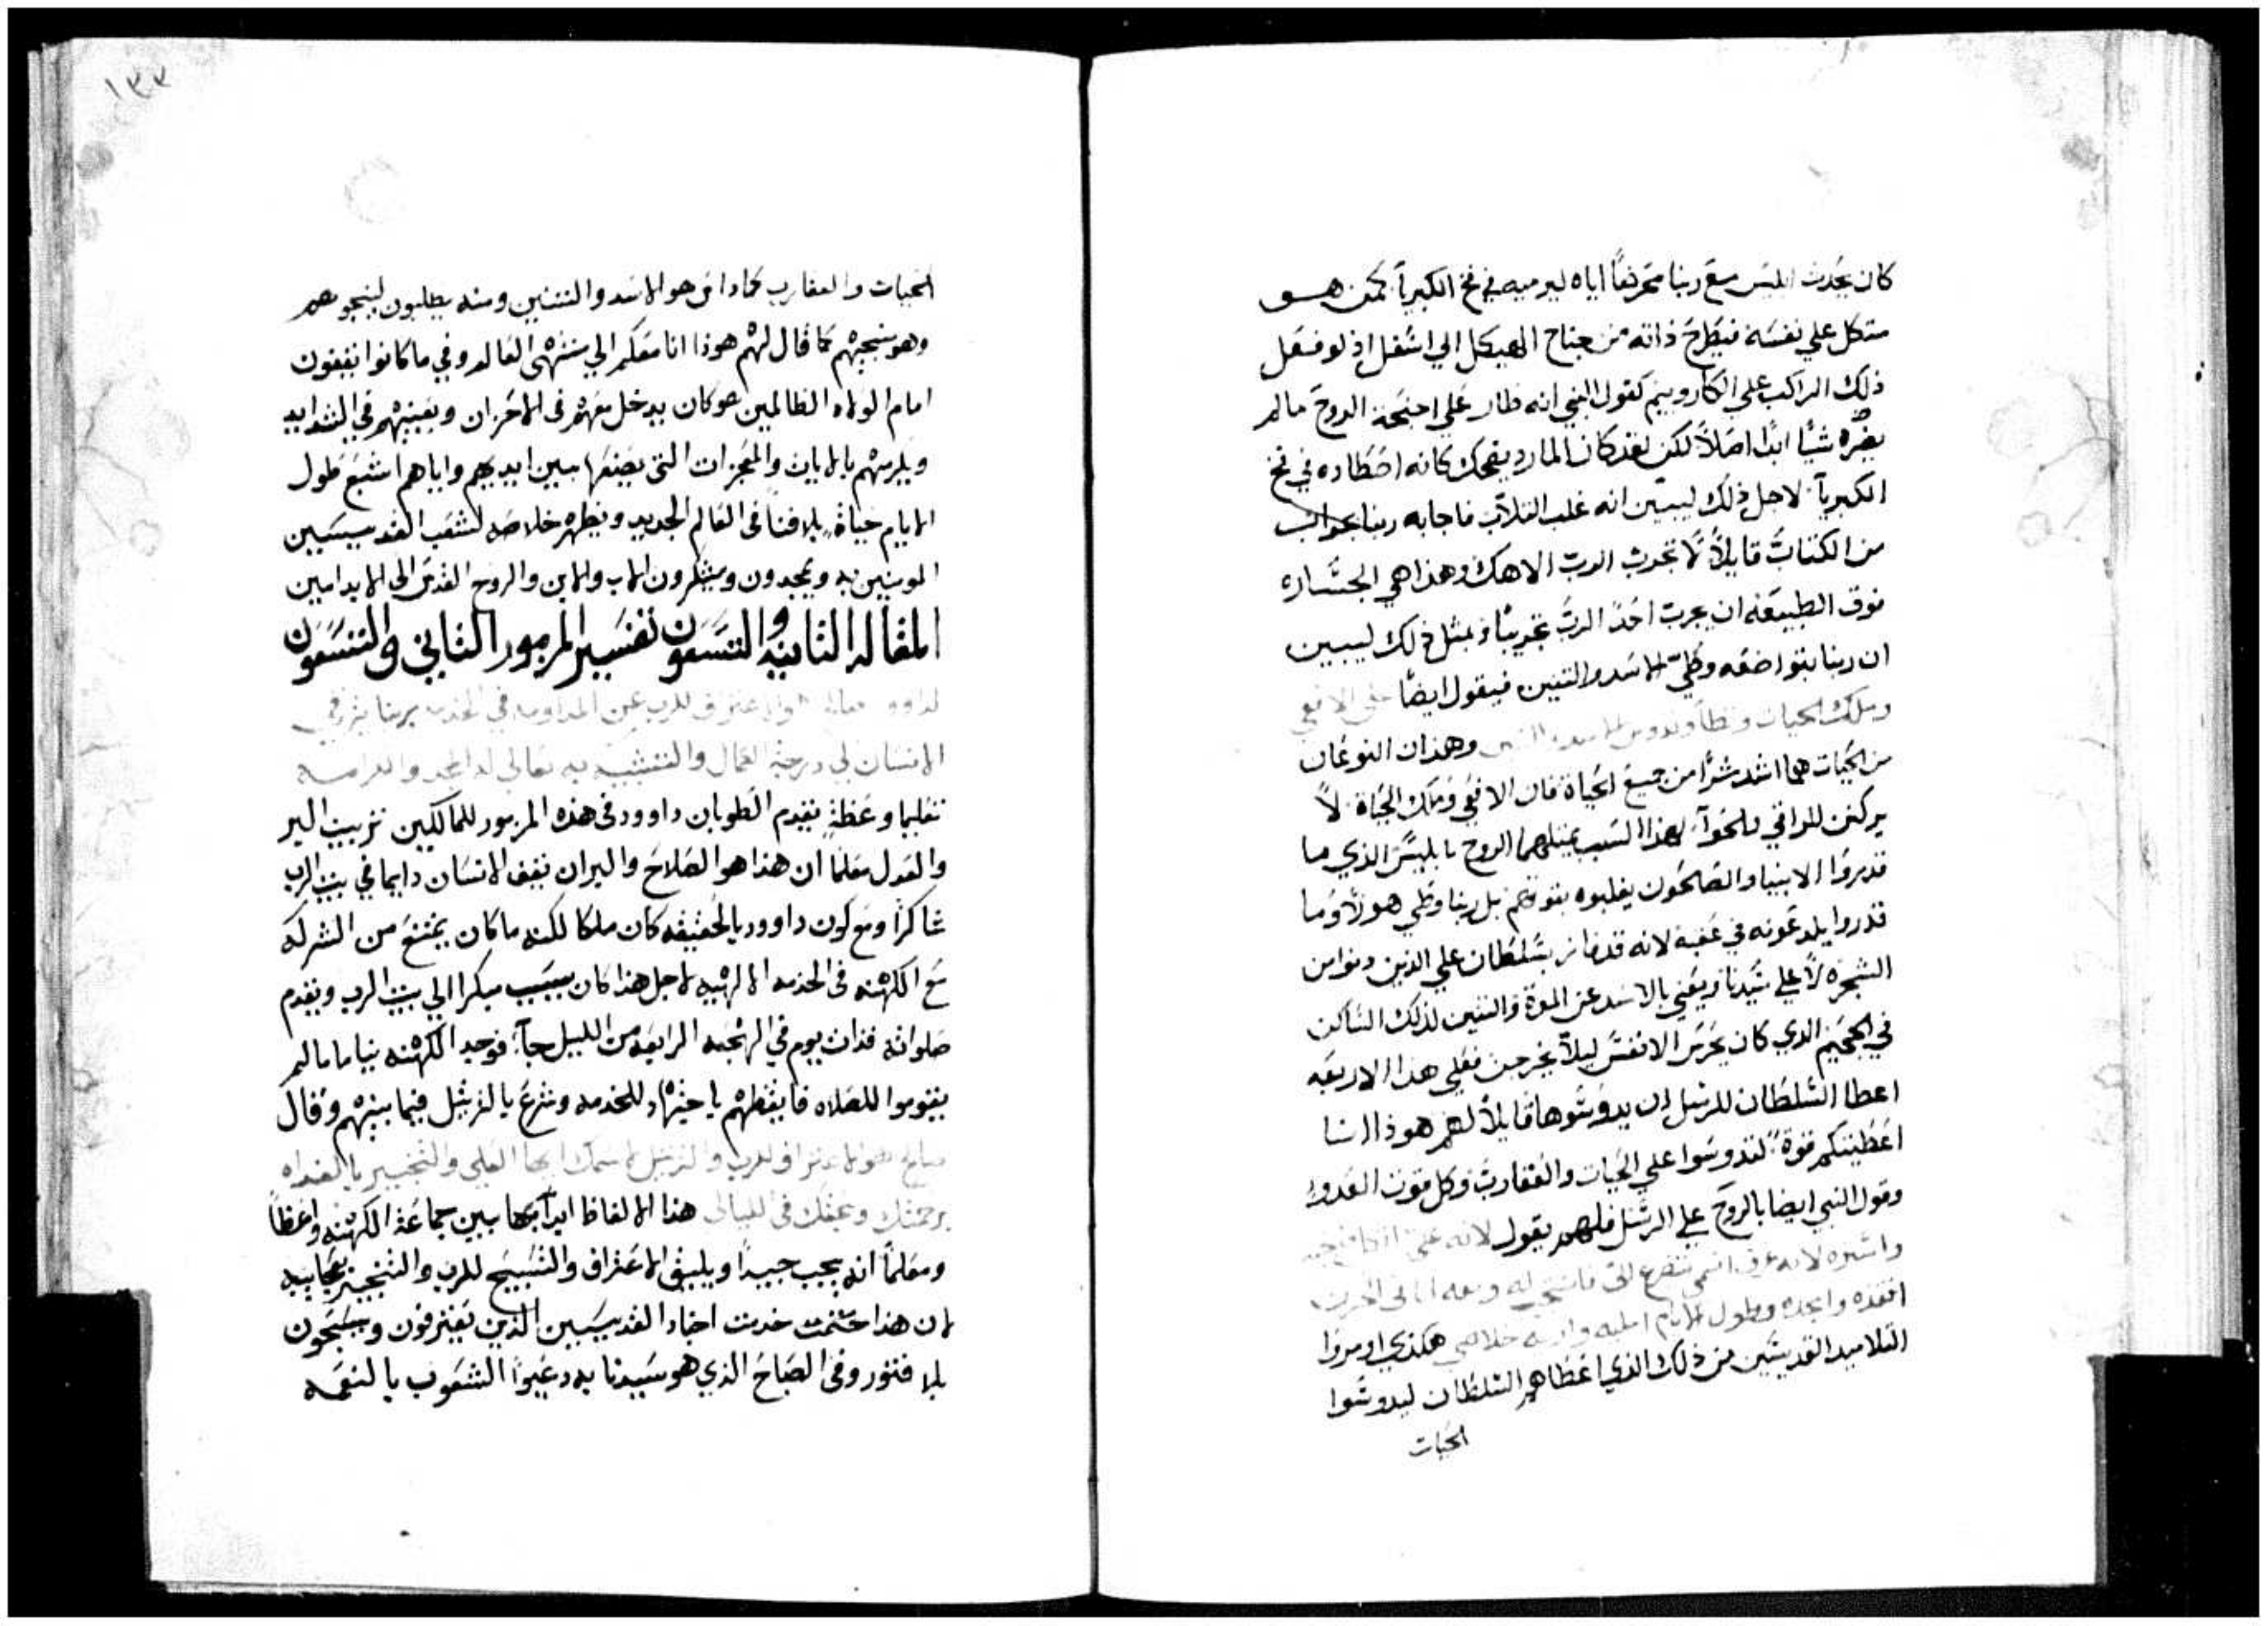 كان يحدث ابليس مع ربنا محركفًا اياه ليرميه في فخ الكبريآ كمن هو
متكل علي نفسه فيطرح ذاته من جناح الهيكل الي اسفل اذ لو فعل
ذلك الراكب علي الكاروبيم كقول النبي انه طار علي اجنحة الروح ما لم
يضره شيًا ابدًا اصلاً لكن لقد كان المارد يضحك كانه اصطاده في فخ
الكبريآ لاجل ذلك ليبين انه غلب الثلاب فاجابه ربنا بجواب
من الكتاب قايلاً لا تجرب الرب الاهك وهذا هي الجساره
فوق الطبيعه ان يجرب احدٌ الربُ تجريبًا وبمثل ذلك ليبين
ان ربنا بتواضعه وطي الاسد والتنين فيقول ايضًا علي الافعي
وملك الحيات وتطأ وتدوس الاسد والتنين وهذان النوعان
من الحيات هما اشد شرًا من جميع الحياة فان الافعي وملك الحياة لا
يركنن للراقي للحوآ لهذا السبب يمثلهما الروح بابليس الذي ما
قدروا الانبيا والصلحون يغلبوه بقوتهم بل ربنا وطي هولا وما
قدروا يلدعونه في عقبه لانه قد فاز بسلطان علي الذين دنوا من
الشجره لا علي سيدنا ويعني بالاسد عن الموة والتنين لذلك الساكن
في الجحيم الذي كان يحرس الانفس ليلاً يخرجن فعلي هذا الاربعه
اعطا السلطان للرسل ان يدوسوها قايلاً لهم هوذا انا
اعطيتكم قوة لتدوسوا علي الحيات والعقارب وكل قوت العدو
وقول النبي ايضا بالروح علي الرسل فلهم يقول لانه علي اتكل فنجيه
واستره لانه عرف اسمي يتضرع الي فاستجيب له ومعه انا في الحزن
انقذه وامجده وطول الايام امليه واريه خلاصي هكذي اومروا
التلاميد القديسين من ذلك الذي اعطاهم السلطان ليدوسوا
الحيات
١٣٣
الحيات والعقارب كما داس هو الاسد والتنين ومنه يطلبون لينجوهم
وهو ينجيهم كما قال لهم هوذا انا معكم الي منتهى العالم وفي ما كانوا يقفون
امام الولاه الظالمين هو كان يدخل معهم في الاحزان ويعينهم في الشدايد
ويكرمهم بالايات والمعجزات التي يصنعها بين ايديهم واياهم اشبع طول
الايام حياة بلا فنا في العالم الجديد ويظهر خلاصه لشعب القديسيين
المومنين به ويمجدون ويشكرون الاب والابن والروح القدس الى الابد امين
المقاله الثانيه والتسعون تفسير المزمور الثاني والتسعون
لداوود صالح هو الاعتراف للرب عن المداومه في الخدمه بربنا يرتقي
الانسان الي درجة الكمال والتشبيه به تعالي له المجد والكرامه
تعليما وعظةٍ يقدم الطوبان داوود في هذه المزمور للمالكين ترتيب البر
والعدل معلمًا ان هذا هو الصلاح والبر ان يقف الانسان دايما في بيت الرب
شاكرًا ومع كون داوود بالحقيقه كان ملكا لكنه ما كان يمتنع من الشركه
مع الكهنه في الخدمه الالهيه لاجل هذا كان يسبب مبكرا الي بيت الرب ويقدم
صلواته فذات يوم في الهجعه الرابعه من الليل جآ فوجد الكهنه نياما ما لم
يقوموا للصلاه فايقظهم باجتهاد للخدمه وشرع بالترتيل فيما بينهم وقال
صالح هو الاعتراف للرب والترتيل لاسمك ايها العلي والتخبير بالغداه
برحمتك وحقك في الليالي هذا الالفاظ ابدآ بها بين جماعة الكهنه واعظاً
ومعلمًا انه يجب جيدًا ويليق الاعتراف والتسبيح للرب والتخبير بعجايبه
لان هذا ختمت خدمت احباد القديسيين الذين يعترفون ويسبحون
بلا فتور وفي الصباح الذي هو سيدنا به دعيوا الشعوب بالنعمه